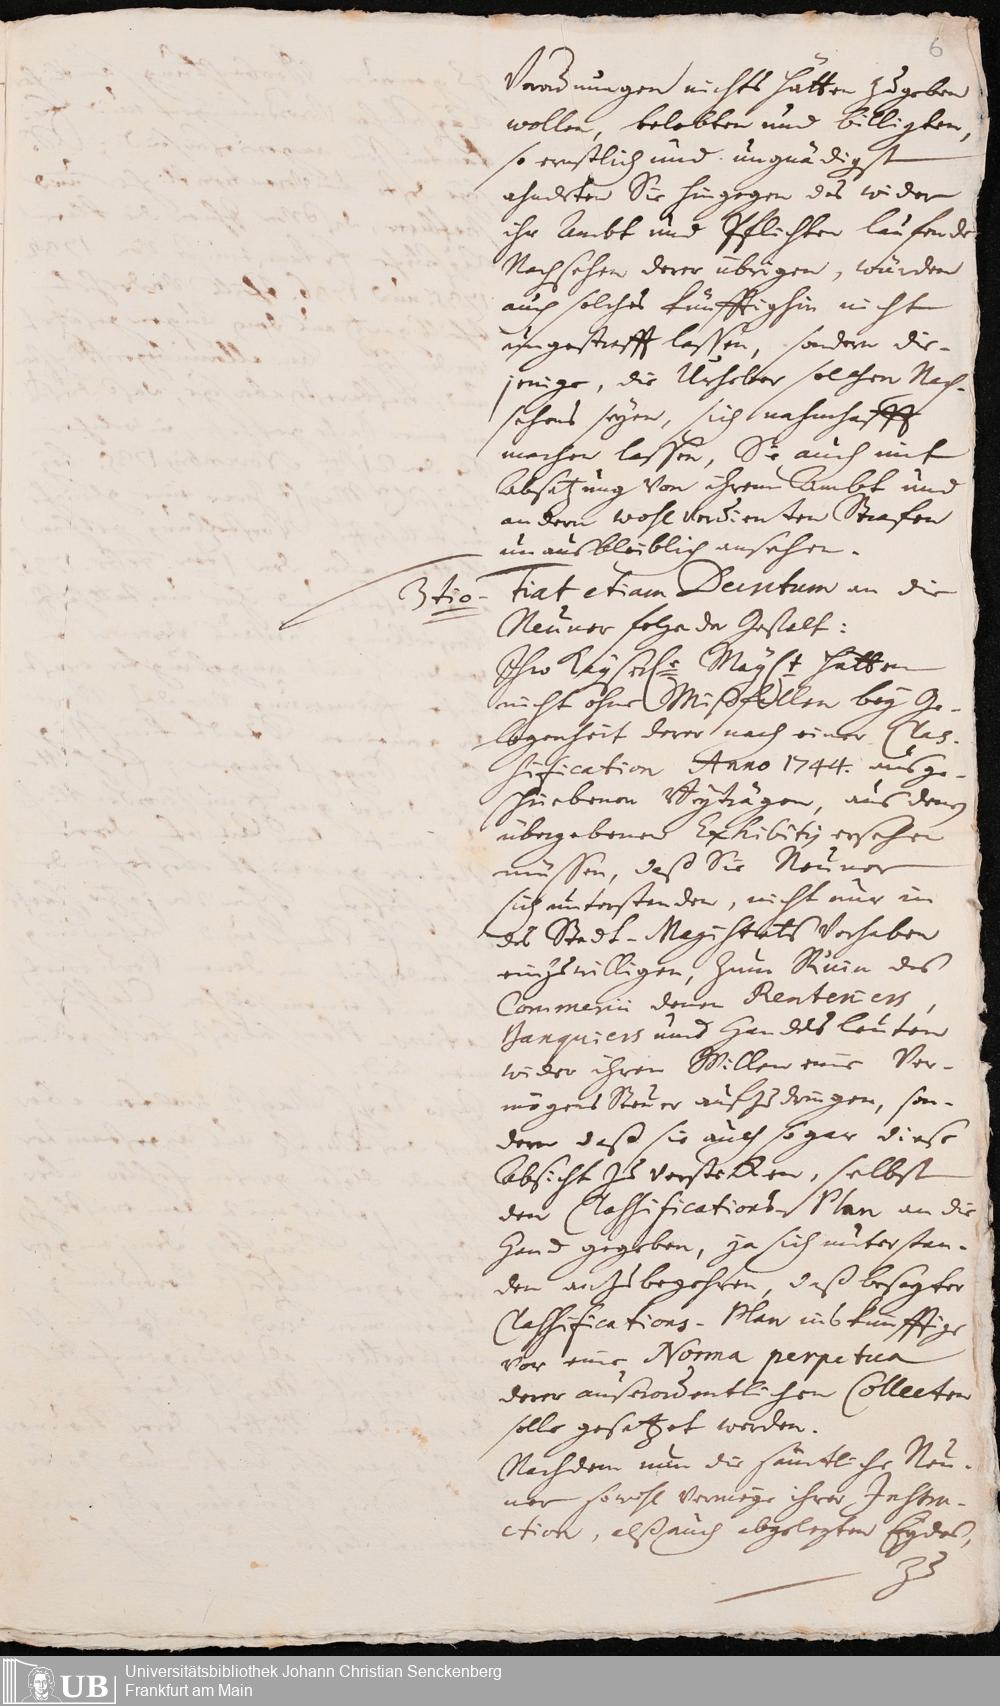 6
Verordnungen nichts hätten zugeben
wollen, belobten und billigten,
so ernstlich und ungnädigst
ahndeten Sie hingegen das wider
ihr Ambt und Pflichten laufende
Nachsehen derer übrigen, würden
auch solches künfftighin nicht
ungestrafft lassen, sondern die-
jenige, die Urheber solchen Nach-
sehens seyen, sich nahmhafft
machen lassen, Sie auch mit
Absetzung von ihrem Ambt und
andern wohlverdienten Strafen
unausbleiblich ansehen.
3tio- Fiat etiam Decretum an die
Neuner folgender Gestalt:
Ihro Kayserl: Mayst: hätten
nicht ohne Mißfallen bey Ge-
legenheit derer nach einer Clas-
sification Anno 1744. ausge-
schriebenen Beyträgen, aus denen
übergebenen Exhibitis ersehen
müssen, daß Sie Neuner
sich unterstanden, nicht nur in
des Stadt-Magistrats Vorhaben
einzuwilligen, zum Ruin des
Commercii denen Rentenirers,
Banquiers und Handelsleuten
wider ihren Willen eine Ver-
mögens Steuer aufzudringen, son-
dern daß sie auch sogar diese
Absicht zu verstecken, selbst
den Classifications-Plan an die
Hand gegeben, ja sich unterstan-
den anzubegehren, daß besagter
Classifications-Plan ins künfftige
vor eine Norma perpetua
derer ausserordentlichen Collecten
solle gesetzet werden.
Nachdem nun die sämtliche Neu-
ner sowohl vermöge ihrer Instru-
ction, alß auch abgelegten Eydes,
zu
UB Universitätsbibliothek Johann Christian Senckenberg
Frankfurt am Main